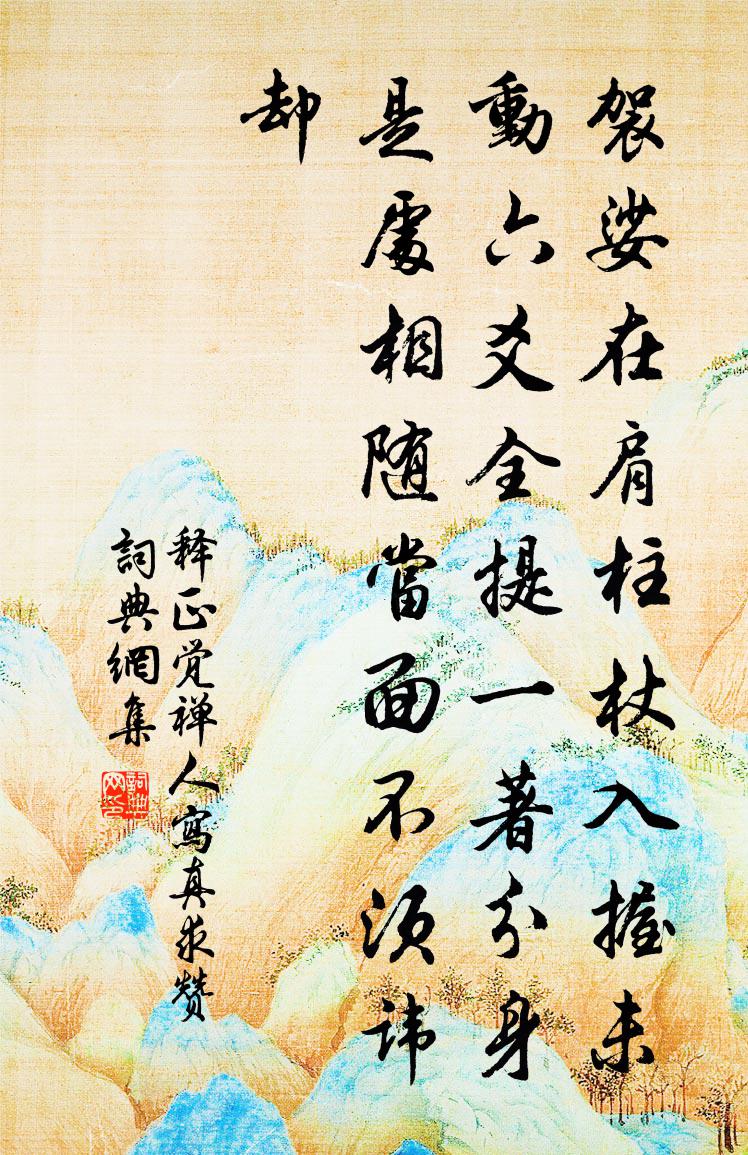 袈娑在肩柱杖入握未
動六爻全提一著分身
是處相随當面不須讳
却
释正觉禅人寫真求赞
詞典網集
詞典网印